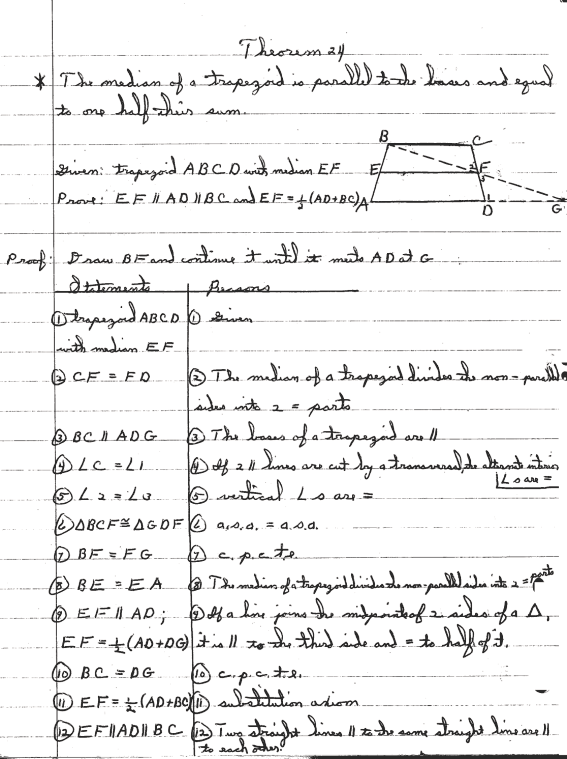 Theorem 24
* The median of a trapezoid is parallel to the bases and equal
to one half their sum.
B C
Given: trapezoid ABCD with median EF
E 2 F
3
Prove: EF || AD || BC and EF = 1/2 (AD+BC)
A 1 D G
Proof: Draw BF and continue it until it meets AD at G
Statements Reasons
① trapezoid ABCD ① Given
with median EF
② CF = FD ② The median of a trapezoid divides the non-parallel
sides into 2 = parts
③ BC || ADG ③ The bases of a trapezoid are ||
④ ∠C = ∠1 ④ If 2 || lines are cut by a transversal, the alternate interior
∠s are =
⑤ ∠2 = ∠3 ⑤ vertical ∠s are =
⑥ △BCF ≅ △GDF ⑥ a.s.a. = a.s.a.
⑦ BF = FG ⑦ c.p.c.t.e.
⑧ BE = EA ⑧ The median of a trapezoid divides the non-parallel sides into 2 = parts
⑨ EF || AD; ⑨ If a line joins the midpoints of 2 sides of a △,
EF = 1/2 (AD+DG) it is || to the third side and = to half of it.
⑩ BC = DG ⑩ c.p.c.t.e.
⑪ EF = 1/2 (AD+BC) ⑪ substitution axiom
⑫ EF || AD || BC ⑫ Two straight lines || to the same straight line are ||
to each other.